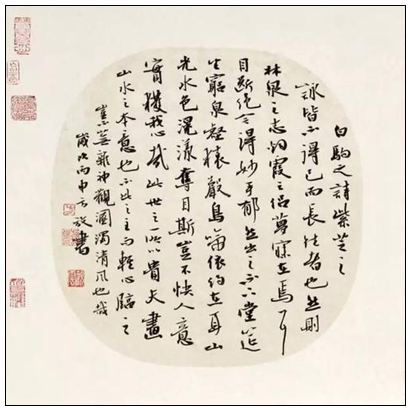 白駒之詩紫芝之
詠皆不得已而長往者也然則
林泉之志烟霞之侶夢寐在焉耳
目斷絕今得妙手郁然出之不下堂筵
坐窮泉壑猿聲鳥啼依約在耳山
光水色滉漾奪目斯豈不快人意
實獲我心哉此世之所以貴夫畫
山水之本意也不此之主而輕心臨之
豈不蕪雜神觀溷濁清風也哉
歲次丙申書